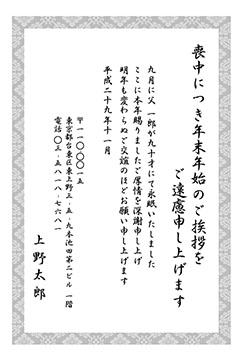 喪中につき年末年始のご挨拶を
ご遠慮申し上げます
九月に父 一郎が九十才にて永眠いたしました
ここに本年賜りましたご厚情を深謝申し上げ
明年も変わらぬご交誼のほどお願い申し上げます
平成二十九年十一月
〒一一〇-〇〇一五
東京都台東区東上野三-五-九本池田第二ビル 一階
電話〇三-五八一八-七六八一
上野太郎